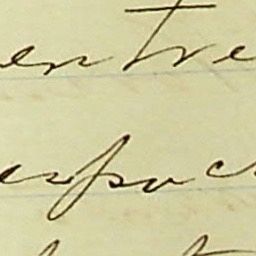 entre
espac